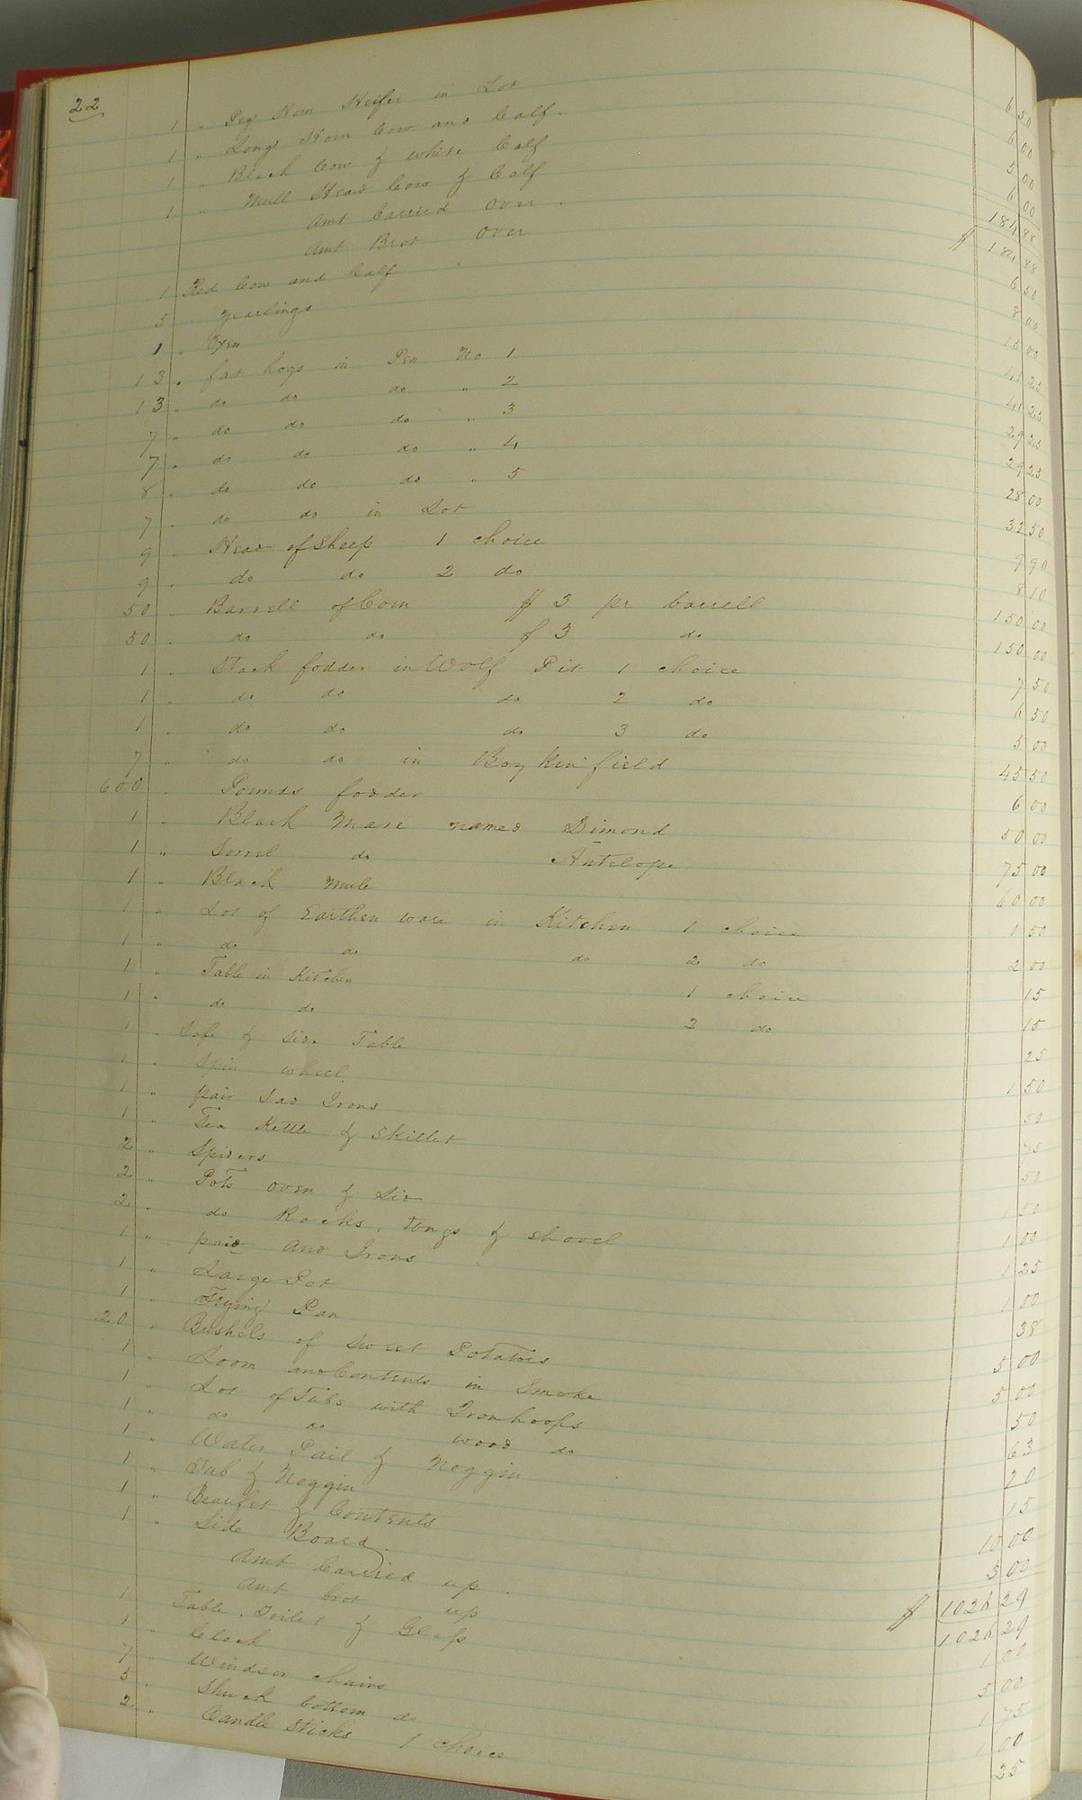 22
1 " Peg Horn Heifer in Lot 6 50
1 " Long Horn Cow and Calf. 6 00
1 " Black Cow & white Calf 5 00
1 " Mull Head Cow & Calf 6 00
Amt Carried Over. 184 88
Amt Brot Over $ 184 88
1 Red Cow and Calf 6 50
5 Yearlings 8 00
1 " Oxen 15 00
13 " fat hogs in Pen No 1 41 25
13 " do do do " 2 41 25
7 " do do do " 3 29 25
7 " do do do " 4 29 25
8 " do do do " 5 28 00
7 " do do in Lot 32 50
9 " Head of Sheep 1 choice 9 90
9 " do do 2 do 8 10
50 " Barrell of Corn $ 3 pr barrell 150 00
50 " do do $ 3 do 150 00
1 " Stack fodder in Wolf Pit 1 choice 7 50
1 " do do do 2 do 6 50
1 " do do do 3 do 5 00
7 " do do in Boykin field 45 50
600 " Pounds fodder 6 00
1 " Black Mare named Dimond 50 00
1 " Sorrel do Antelope 75 00
1 " Black Mule 60 00
1 " Lot of Earthen ware in Kitchen 1 choice 1 50
1 " do do do 2 do 2 00
1 " Table in Kitchen 1 choice 15
1 " do do 2 do 15
1 " Safe & Side Table 25
1 " Spin wheel 1 50
1 " pair Sad Irons 50
1 " Tea Kettle & Skillet 75
2 " Spiders 50
2 " Pots oven & Lid 1 50
2 " do Racks, tongs & shovel 1 00
1 " paid And Irons 1 25
1 " Large Pot 1 00
1 " Frying Pan 38
20 " Bushels of Sweet Potatoes 5 00
1 " Loom and Contents in Smoke 5 00
1 " Lot of Tubs with Iron hoops 50
1 " do do wood do 63
1 " Water Pail & Noggin 20
1 " Tub & Noggin 15
1 " Beaufet & Contents 10 00
1 " Side Board. 5 00
Amt Carried up. $ 1026 29
Amt brot up 1026 29
1 Table, Toilet & Glass 1 00
1 " Clock 5 00
7 " Windsor chairs 1 75
5 " Shuck bottom do 1 00
2 " Candle Sticks 1 choice 25